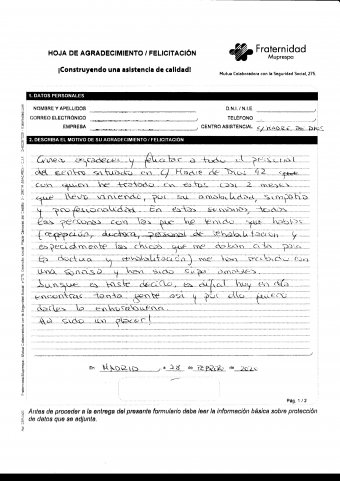 HOJA DE AGRADECIMIENTO / FELICITACIÓN
Fraternidad
Muprespa
¡Construyendo una asistencia de calidad!
Mutua Colaboradora con la Seguridad Social, 275.
1. DATOS PERSONALES
NOMBRE Y APELLIDOS
D.N.I. / N.I.E.
CORREO ELECTRÓNICO
TELÉFONO
EMPRESA
CENTRO ASISTENCIAL C/MADRE DE DIOS
2. DESCRIBA EL MOTIVO DE SU AGRADECIMIENTO / FELICITACIÓN
Quiero agradecer y felicitar a todo el personal
del centro situado en C/ Madre de Dios 42
con quien he tratado en estos casi 2 meses
que llevo viniendo, por su amabilidad, simpatía
y profesionalidad. En estas semanas, todas
las personas con las que he tenido que hablar
(recepción, doctora, personal de rehabilitación, y
especialmente los chicos que me daban cita para
la doctora y rehabilitación) me han recibido con
una sonrisa y han sido super amables.
Aunque es triste decirlo, es difícil hoy en día
encontrar tanta gente así y por ello quiero
darles la enhorabuena.
Ha sido un placer!
en MADRID, a 28 de de 202
Pág. 1 / 2
Antes de proceder a la entrega del presente formulario debe leer la información básica sobre protección
de datos que se adjunta.